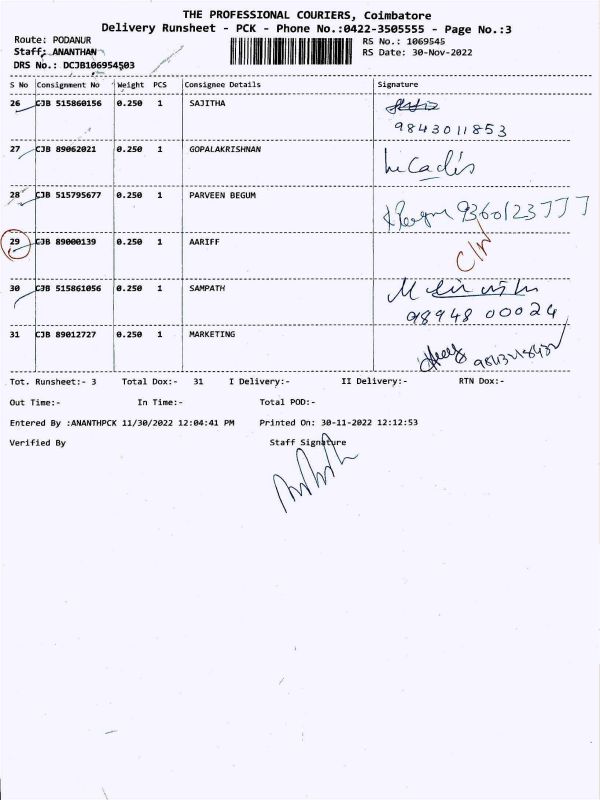 THE PROFESSIONAL COURIERS, Coimbatore
Delivery Runsheet - PCK - Phone No.:0422-3505555 - Page No.:3
Route: PODANUR
RS No.: 1069545
Staff: ANANTHAN
RS Date: 30-Nov-2022
DRS No.: DCJB106954503
S No Consignment No Weight PCS Consignee Details Signature
26 CJB 515860156 0.250 1 SAJITHA
9843011853
27 CJB 89062021 0.250 1 GOPALAKRISHNAN
28 CJB 515795677 0.250 1 PARVEEN BEGUM
29 CJB 89000139 0.250 1 AARIFF
30 CJB 515861056 0.250 1 SAMPATH
98948 00024
31 CJB 89012727 0.250 1 MARKETING
Tot. Runsheet:- 3 Total Dox:- 31 I Delivery:- II Delivery:- RTN Dox:-
Out Time:- In Time:- Total POD:-
Entered By :ANANTHPCK 11/30/2022 12:04:41 PM Printed On: 30-11-2022 12:12:53
Verified By Staff Signature